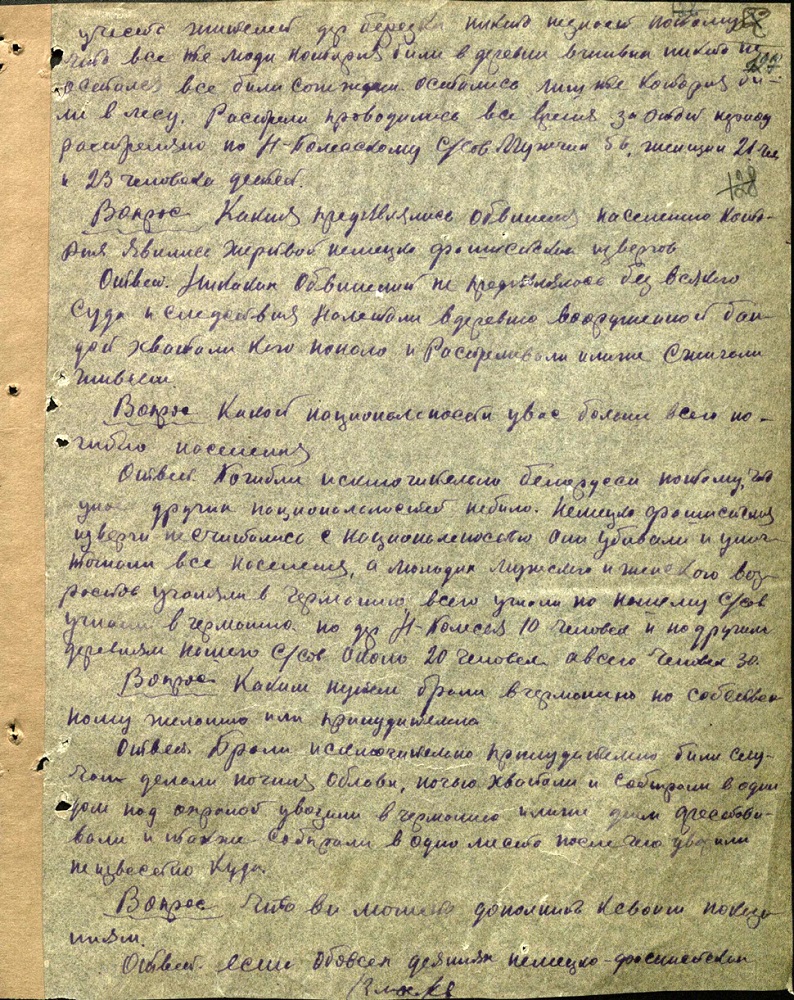 участь жителей дер березка никто незнает потому
что все те люди которыя были в деревни вживых никто не
остался все были сожжены. остались лиш те которыя бы-
ли в лесу. Растрелы проводились все время за этот период
растреляно по Н-Полескому С/сов Мужчин 56, женщин 21 чел
и 23 человека детей.
128
Вопрос Какия предявлялись обвинения населению кото-
рыя явились жертвой немецко фашистских извергов
Ответ. Никаких обвинений не предявлялось без всякого
суда и следствия налетали в деревню вооруженной бан-
дой хватали кого попало и Растреливали и также сжигали
живьем
Вопрос Какой национальности увас больше всего по-
гибло населения
Ответ. Погибли исключительно белорусы потому, что
унас других национальностей небыло. Немецко фашистския
изверги несчитались с национальностью они убивали и унич-
тожали все население, а молодых мужского и женского воз-
раста угоняли в германию, всего угнали по нашему С/сов
угнали в германию по дер Н-Полесья 10 человек и по другим
деревням нашего С/сов около 20 человек а всего человек 30.
Вопрос Каким путем брали в германию по собствен
ному желанию или принудительно
Ответ. Брали исключительно принудительно были слу-
чаи делали ночныя облавы, ночью хватали и собирали в один
дом под охраной увозили в германию и также днем арестовы-
вали и также собирали в одно место после чего увозили
неизвестно куда.
Вопрос Что вы можете дополнить к своим показа
ниям.
Ответ. если обовсех деяниях немецко-фашистских